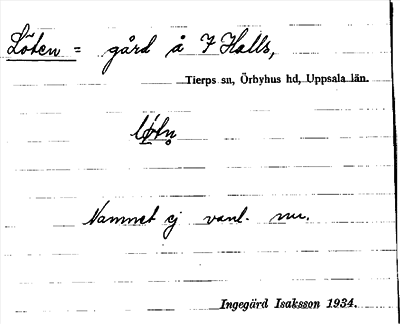 Löten = gård å F Halls,
Tierps sn, Örbyhus hd, Uppsala län.
Namnet ej vanl. nu.
Ingegärd Isaksson 1934.